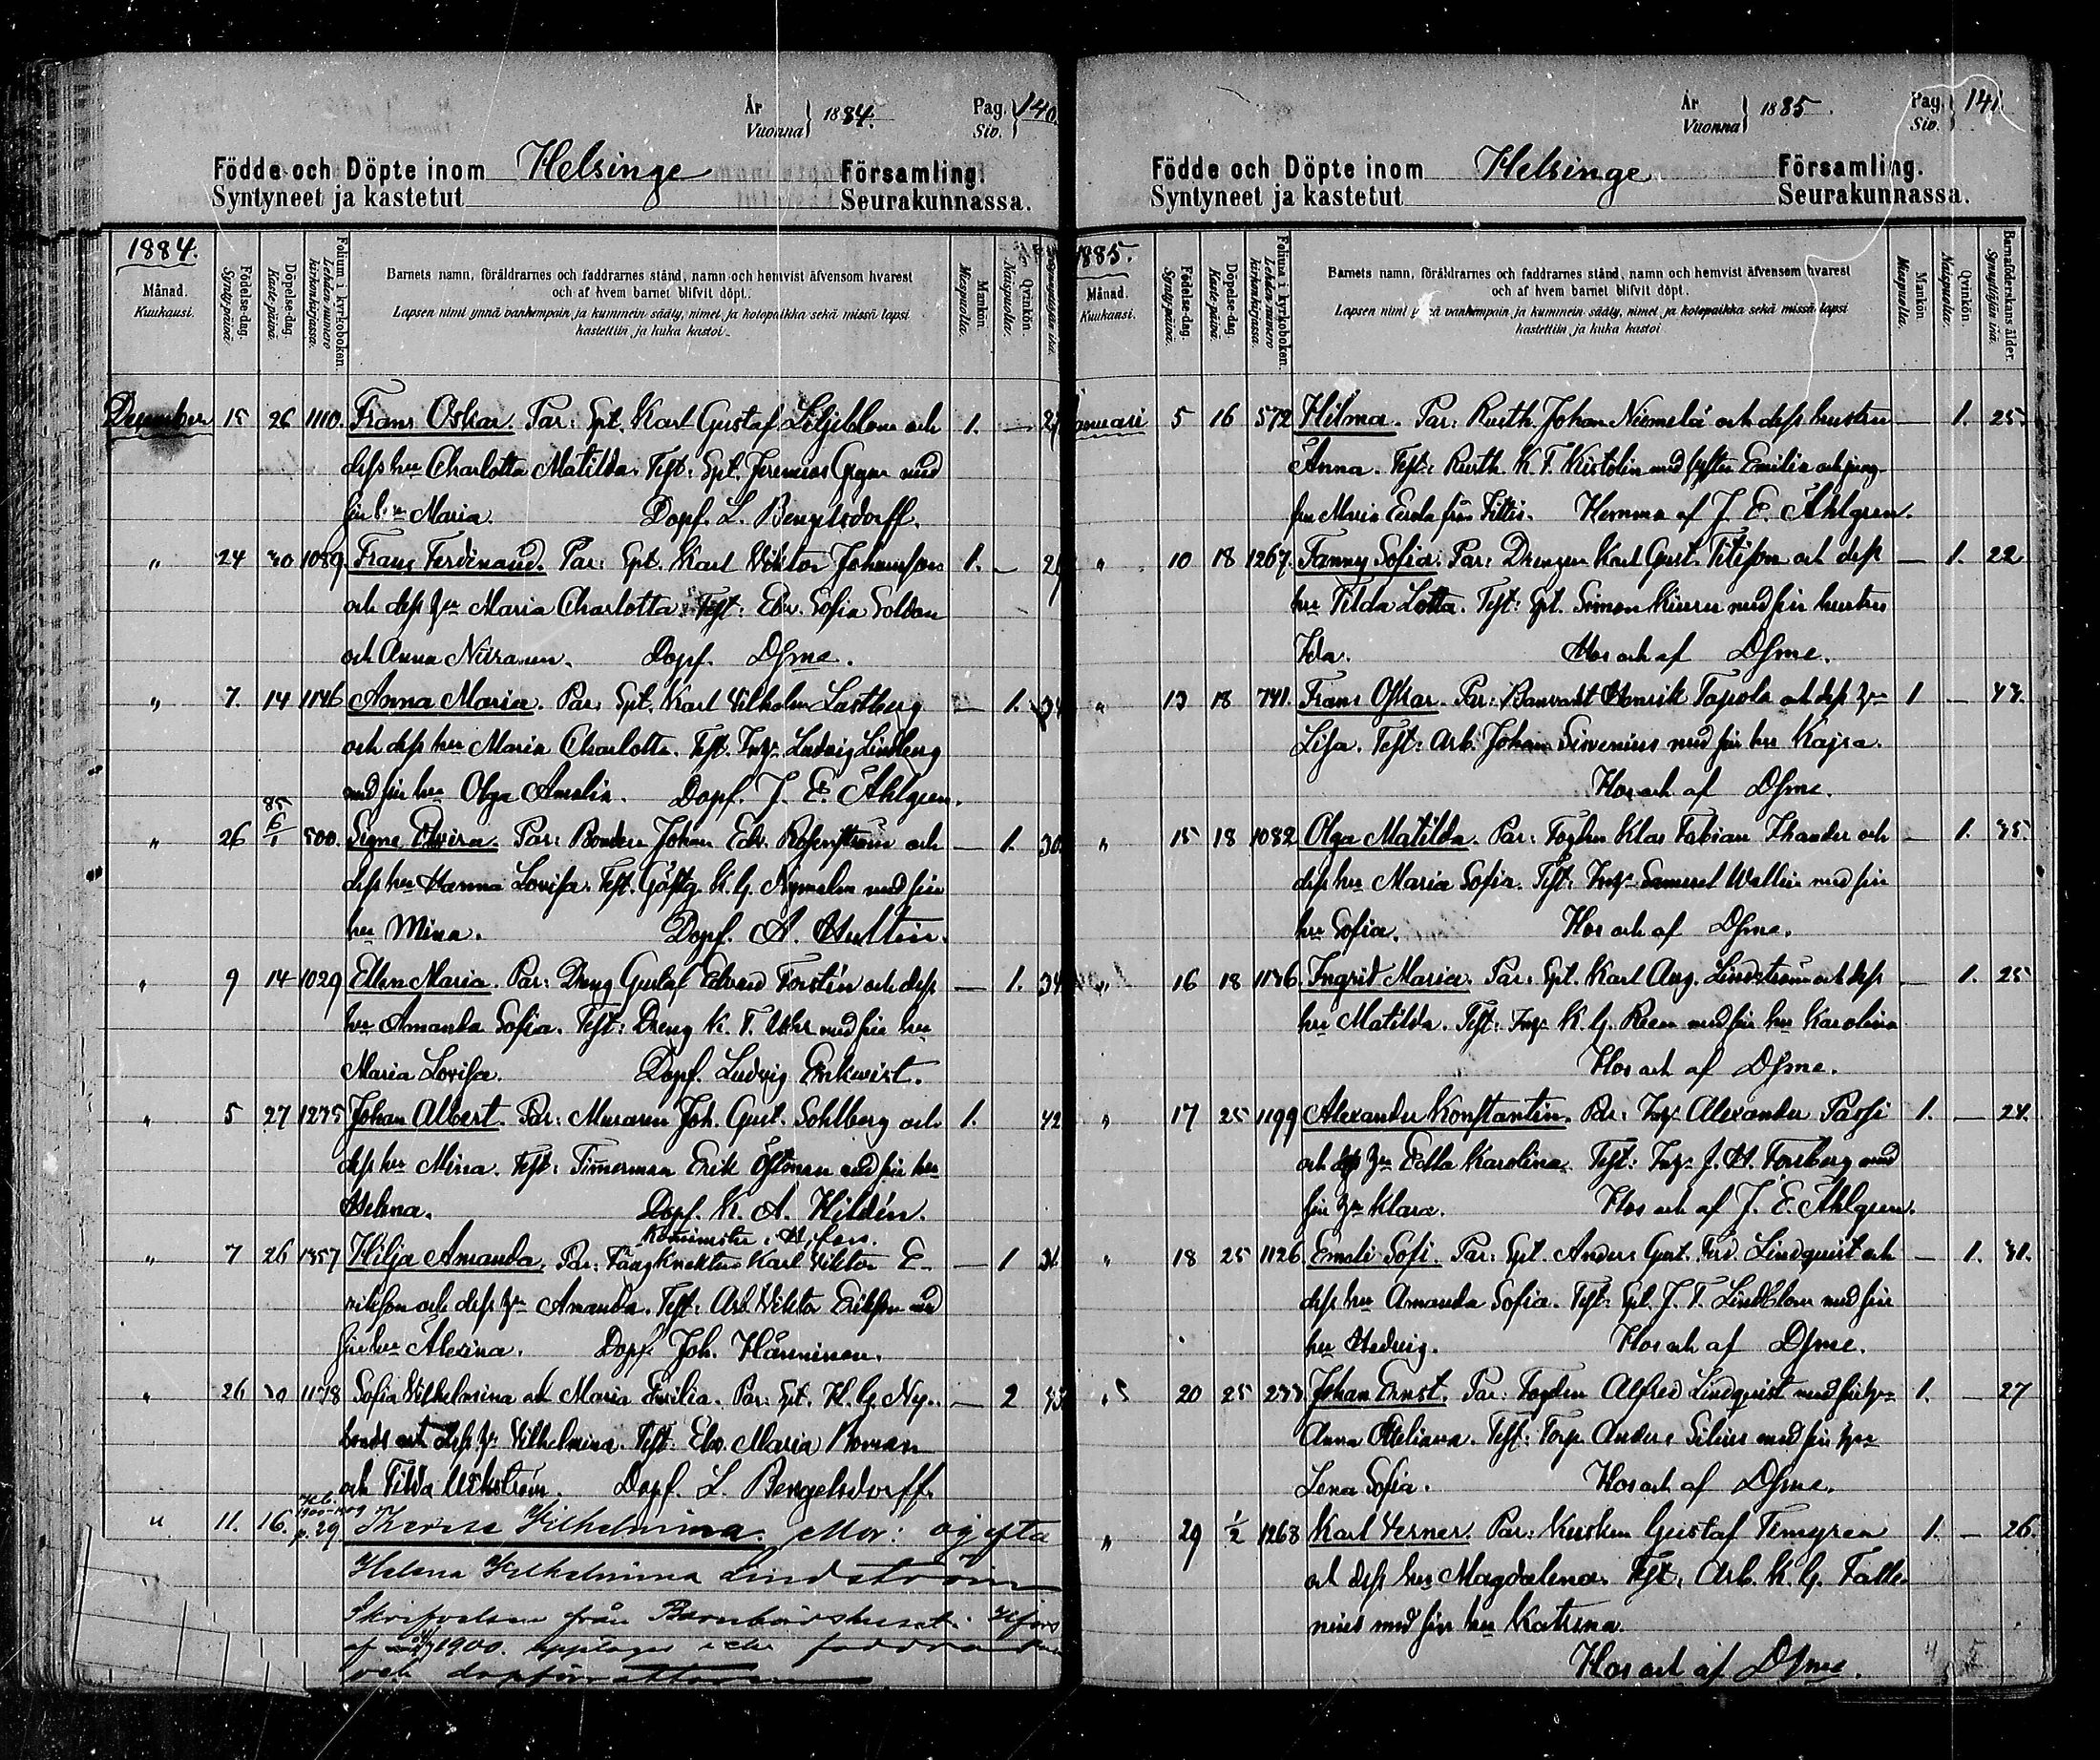 År
Vuonna } 1884.
Pag.
Siv. } 140.
Födde och Döpte inom Helsinge Församling.
Syntyneet ja kastetut Seurakunnassa.
1884.
Månad.
Kuukausi.
Födelse-dag.
Synty-päivä
Döpelse-dag.
Kaste-päivä.
Folium i kyrkoboken.
Lehden numero kirkonkirjassa.
Barnets namn, föräldrarnes och faddrarnes stånd, namn och hemvist äfvensom hvarest
och af hvem barnet blifvit döpt.
Lapsen nimi ynnä vanhempain ja kummein sääty, nimet ja kotopaikka sekä missä lapsi
kastettiin ja kuka kastoi.
Mankön.
Miespuolia.
Qvinkön.
Naispuolia.
December 15 26 1110. Frans Oskar. Par: Spt. Karl Gustaf Liljeblom och 1. —
dess hu Charlotta Matilda. Test: Spt. Jeremias med
sin hu Maria. Dopf. L. Bengelsdorff.
" 24 30 1089. Frans Ferdinand. Par: Spt. Karl Viktor Johansson 1. —
och dess hu Maria Charlotta. Test: Elw. Sofia Soldan
och Anna Dopf. Dsme.
" 7. 14 1146 Anna Maria. Par: Spt. Karl Vilhelm Lastberg — 1. 34
och dess hu Maria Charlotta. Test. Ludvig Lindberg
med sin hu Olga Amalia. Dopf. J. E. Åhlgren.
" 26 85 6/1 500. Signe Elvira. Par: Bonden Johan Edv. Rosenström och — 1. 30
dess hu Hanna Lovisa. Test. Gästg. K. G. Nyholm med sin
hu Mina. Dopf. A. Hultin.
" 9 14 1029 Ellen Maria. Par: Dreng Gustaf Edvard Forstén och dess — 1. 34
hu Amanda Sofia. Test: Dreng K. F. med sin hu
Maria Lovisa. Dopf. Ludvig Enkwist.
" 5 27 1275 Johan Albert. Par: Muraren Joh. Gust. Sohlberg och 1. 42
dess hu Mina. Test: Timerman Erik Östman med sin hu
Helena. Dopf. K. A. Hildén.
Kominister i H:fors.
" 7 26 1357 Hilja Amanda. Par: Fångknekten Karl Viktor E- — 1
riksson och dess hu Amanda. Test: Arb. Viktor Eriksson med
sin hu Alexina. Dopf. Joh. Hänninen.
" 26 30 1178 Sofia Vilhelmina och Maria Emilia. Par: Spt. K. G. Ny- — 2
och dess hu Vilhelmina. Test: Elw. Maria Roman
och Tilda Wikström. Dopf. L. Bengelsdorff.
" 11. 16. 1900-1909 p. 29 Therese Vilhelmina. Mor: ogifta
Helena Vilhelmina Lindström
Skrifvelsen från Barnbördshuset i H:fors
af 1900. upptager icke faddrarne
och dopförrättaren
År
Vuonna } 1885.
Pag.
Siv. } 141.
Födde och Döpte inom Helsinge Församling.
Syntyneet ja kastetut Seurakunnassa.
1885.
Månad.
Kuukausi.
Födelse-dag.
Synty-päivä.
Döpelse-dag.
Kaste-päivä.
Folium i kyrkoboken.
Lehden numero kirkonkirjassa.
Barnets namn, föräldrarnes och faddrarnes stånd, namn och hemvist äfvensom hvarest
och af hvem barnet blifvit döpt.
Lapsen nimi ynnä vanhempain ja kummein sääty, nimet ja kotopaikka sekä missä lapsi
kastettiin ja kuka kastoi
Mankön.
Miespuolia.
Qvinkön.
Naispuolia.
Barnaföderskans ålder.
Synnyttäjän ikä.
Januari 5 16 572 Hilma. Par: Johan Niemelä och dess hustru — 1. 25.
Anna. Test: K. F. Kistolin med syster Emilia och jung-
fru Maria från Hemma af J. E. Åhlgren.
" 10 18 1267. Fanny Sofia. Par: Drengen Karl Gust. och dess — 1. 22
hu Tilda Lotta. Test: Spt. Simon med sin hustru
Ida. Hos och af Dsme.
" 13 18 741. Frans Oskar. Par: Banvakt Henrik Tapola och dess hu 1 — 43.
Lisa. Test: Arb. Johan Sirenius med sin hu Kajsa.
Hos och af Dsme.
" 15 18 1082 Olga Matilda. Par: Torparen Klas Fabian Thander och — 1. 35.
dess hu Maria Sofia. Test: Samuel Wallin med sin
hu Sofia. Hos och af Dsme.
" 16 18 1136. Ingrid Maria. Par: Spt. Karl Aug. Lindström och dess — 1. 25
hu Matilda. Test: K. G. med sin hu Karolina
Hos och af Dsme.
" 17 25 1199 Alexander Konstantin. Par: Alexander Passi 1. — 24.
och dess hu Edla Karolina. Test: J. H. Forsberg med
sin hu Klara. Hos och af J. E. Åhlgren.
" 18 25 1126. Emeli Sofi. Par: Spt. Anders Gust. Ferd. Lindquist och — 1. 31.
dess hu Amanda Sofia. Test: Spt. J. F. Lindblom med sin
hu Hedvig. Hos och af Dsme.
" 20 25 233 Johan Ernst. Par: Alfred Lindqvist med sin hu 1. — 27
Anna Test: Torp. Anders Silius med sin hu
Lena Sofia. Hos och af Dsme.
" 29 1/2 1268 Karl Verner. Par: Kusken Gustaf 1. — 26.
och dess hu Magdalena. Test: Arb. K. G. Falle-
nius med sin hu Katrina.
Hos och af Dsme.